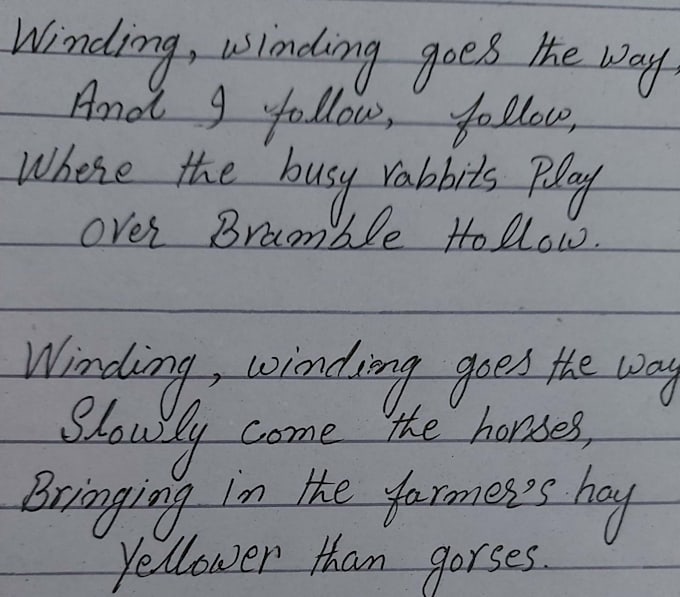 Winding, winding goes the way,
And I follow, follow,
Where the busy rabbits Play
over Bramble Hollow.
Winding, winding goes the way
Slowly come the horses,
Bringing in the farmer's hay
Yellower than gorses.